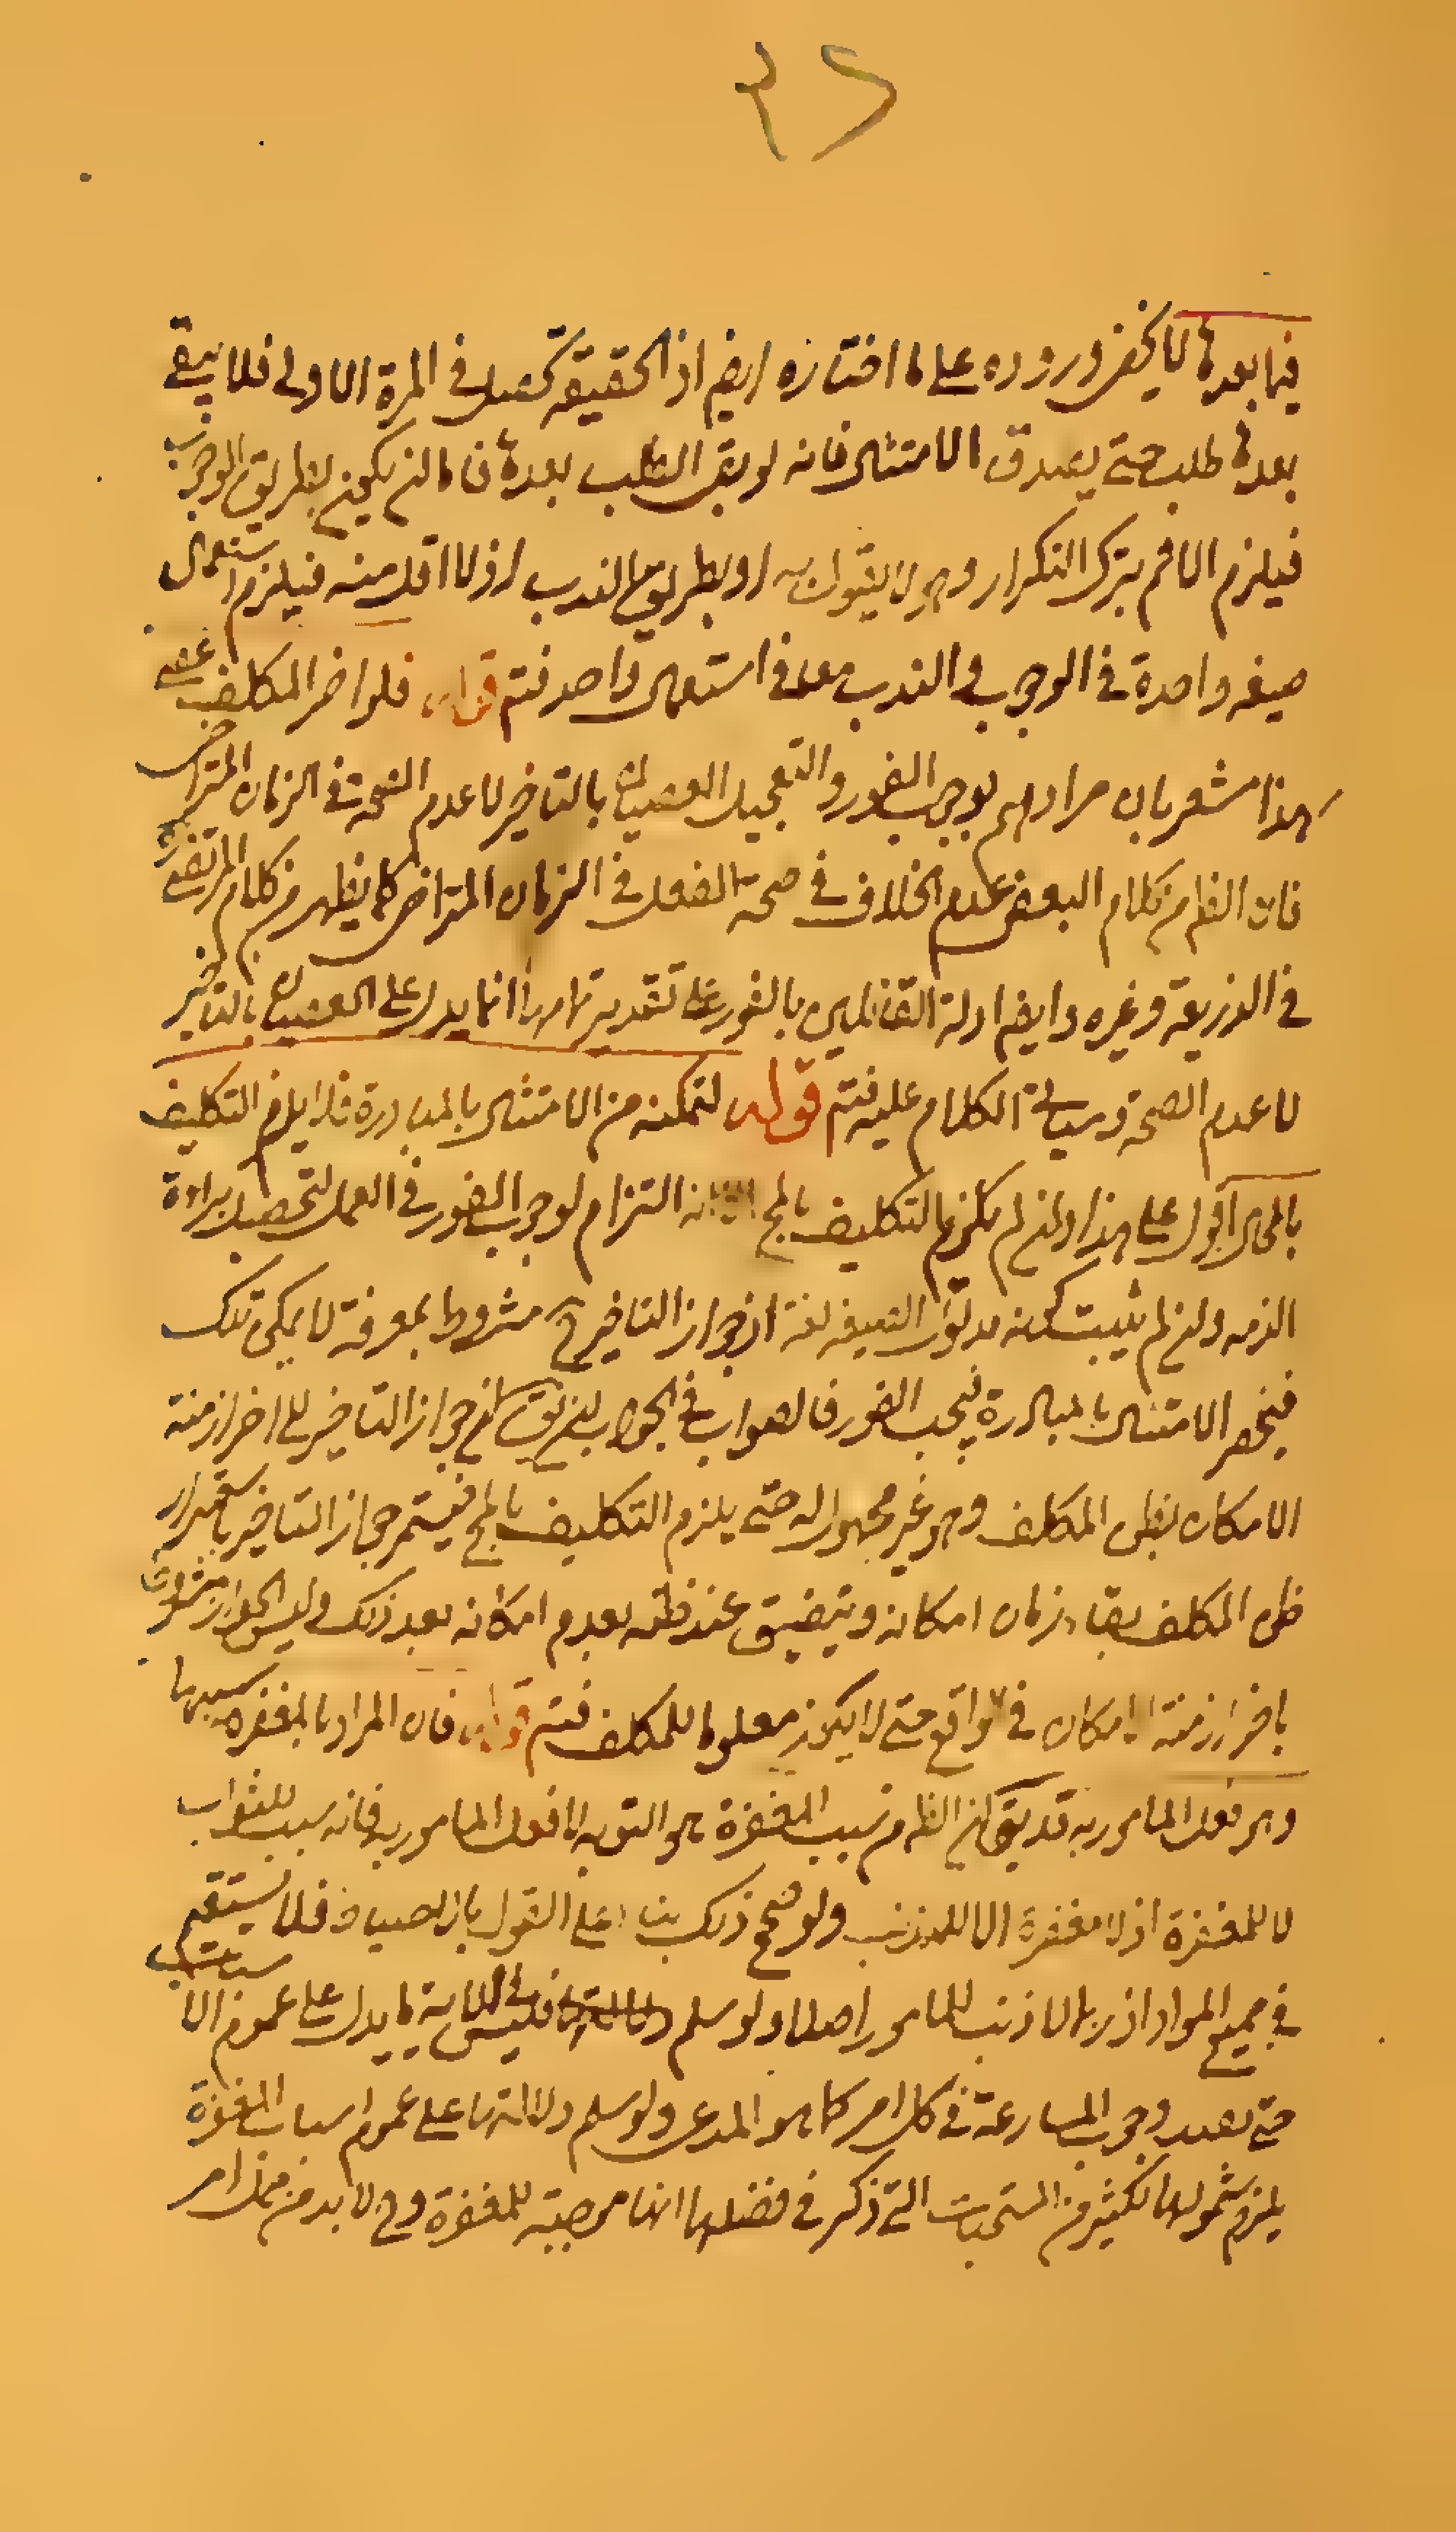 ٣٢
فيما بعدها لا يخفى وروده على ما اختاره ايضا اذ الحقيقة تحصل في المرة الاولى فلا يبقى
بعدها طلب حتى يصدق الامتثال فانه لو بقى الطلب بعدها فاما ان يكون بطريق الوجوب
فيلزم الاثم بترك التكرار وهو لا يقول به او بطريق الندب اذ لا اقل منه فيلزم استعمال
صيغه واحدة في الوجوب والندب معا في استعمال واحد فتم قوله فلو اخر المكلف عصى
هذا مشعر بان مرادهم بوجوب الفور والتعجيل العصيان بالتاخير لا عدم الصحة في الزمان المتراخى
فان الظ من كلام البعض عدم الخلاف في صحة الفعل في الزمان المتراخى كما يظهر من كلام المرتضى ره
في الذريعة وغيره وايضا ادلة القائلين بالفور على تقدير تمامها انما يدل على العصيان بالتاخير
لا عدم الصحة وسياتى الكلام عليه فتم قوله لتمكنه من الامتثال بالمبادرة فلا يلزم التكليف
بالمحال اقول على هذا وان لم يلزم التكليف بالمح التزام لوجوب الفور في العمل لتحصيل براءة
الذمه وان لم يثبت كونه مدلول الصيغه لغة اذ جواز التاخير ح مشروط بمعرفة لا يمكن تلك
فينحصر الامتثال بالمبادرة فيجب الفور فالصواب في الجواب ان يق ان جواز التاخير الى اخر ازمنة
الامكان بظن المكلف وهو غير مجهول له حتى يلزم التكليف بالمح فيستمر جواز التاخير باستمرار
ظن المكلف بقاء زمان امكانه ويتضيق عند ظنه بعدم امكانه بعد ذلك وليس الجواز مشروطا
باخر ازمنة الامكان في الواقع حتى لا يكون معلوما للمكلف فتم قوله فان المراد بالمغفرة سببها
وهو فعل المامور به قد يق ان الظ من سبب المغفرة هو التوبه لا فعل المامور به فانه سبب للثواب
لا للمغفرة اذ لا مغفرة الا للمذنب ولو صح ذلك بناء على القول بان فلا يستقيم
في جميع المواد اذ ربما لا ذنب للمامور اصلا ولو سلم فليس في الاية ما يدل على عموم الاسباب
حتى يفيد وجوب المسارعة في كل امر كما هو المدعى ولو سلم دلالتها على عموم اسباب المغفرة
يلزم شمولها لكثير من المستحبات التى ذكر في فضلها انها موجبة للمغفرة وح لا بد من حمل امر